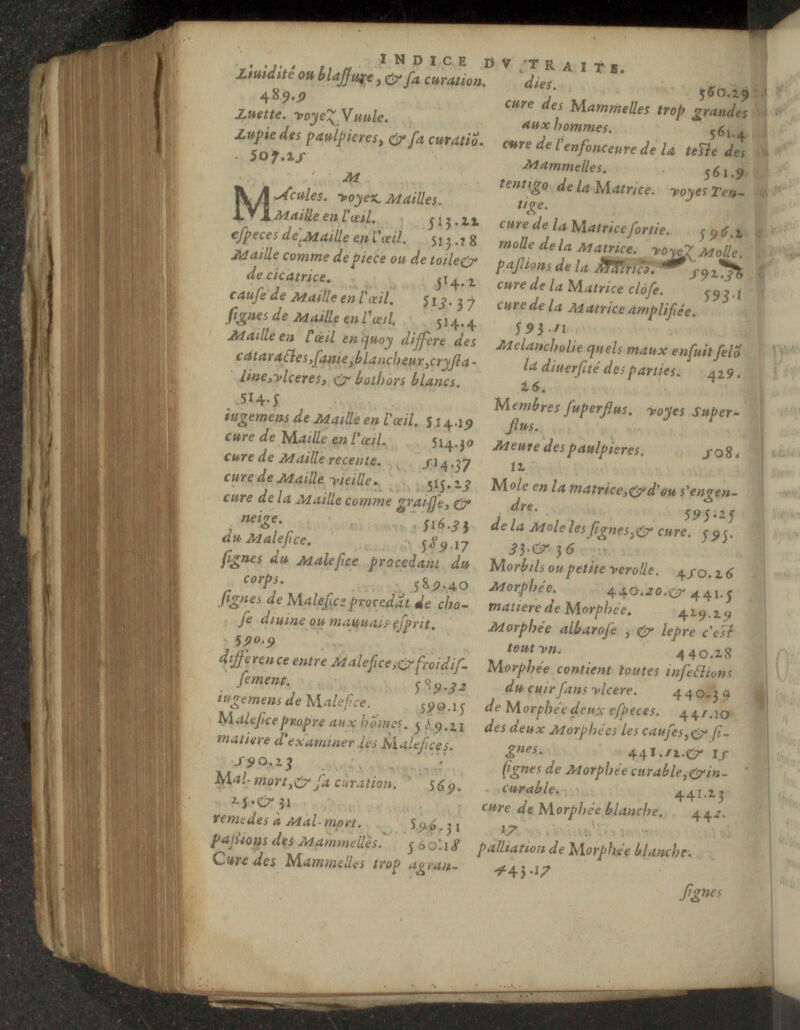 INDICE DV TRAITE.
Liuidité ou blassure, & sa curation.
489.9
Luette. voyez Vuule.
Lupie des paulpieres, & sa curatiõ.
507.25
M
MAcules. voyez Mailles.
Maille en l'œil. 513.22
especes de Maille en l'œil. 513.28
Maille comme de piece ou de toile &
de cicatrice. 514.2
cause de Maille en l'œil. 513.37
signes de Maille en l'œil. 514.4
Maille en l'œil en quoy differe des
cataractes, sanie, blancheur, crysta-
line, vlceres, & bothors blancs.
514.5
iugemens de Maille en l'œil. 514.19
cure de Maille en l'œil. 514.30
cure de Maille recente. 514.37
cure de Maille vieille. 515.23
cure de la Maille comme graisse, &
neige. 516.33
du Malefice. 589.17
signes du Malefice procedant du
corps. 589.40
signes de Malefice procedãt de cho-
se diuine ou mauuais esprit.
590.9
difference entre Malefice, & froidis-
sement. 589.32
iugemens de Malefice. 590.15
Malefice propre aux hõmes. 589.21
matiere d'examiner les Malefices.
590.23
Mal-mort, & sa curation. 569.
25.& 31
remedes à Mal-mort. 596.31
passions des Mammelles. 560.18
Cure des Mammelles trop agran-
dies. 560.29
cure des Mammelles trop grandes
aux hommes. 561.4
cure de l'enfonceure de la teste des
Mammelles. 561.9
tentigo de la Matrice. voyes Ten-
tige.
cure de la Matrice sortie. 596.2
molle de la Matrice. voyez Molle.
passions de la Matrice. 592.36
cure de la Matrice close. 593.1
cure de la Matrice amplifiée.
593.11
Melancholie quels maux ensuit selõ
la diuersité des parties. 429.
26.
Membres superflus. voyes Super-
flus.
Meure des paulpieres. 508.
12
Mole en la matrice, & d'ou s'engen-
dre. 595.25
de la Mole les signes, & cure. 595.
33.& 36
Morbils ou petite verolle. 450.26
Morphée. 440.20.& 441.5
matiere de Morphée. 429.29
Morphée albarose, & lepre c'est
tout vn. 440.28
Morphée contient toutes infections
du cuir sans vlcere. 440.39
de Morphée deux especes. 441.10
des deux Morphées les causes, & si-
gnes. 441.12.& 15
signes de Morphée curable, & in-
curable. 441.23
cure de Morphée blanche. 442.
17
palliation de Morphée blanche.
443.17
signes